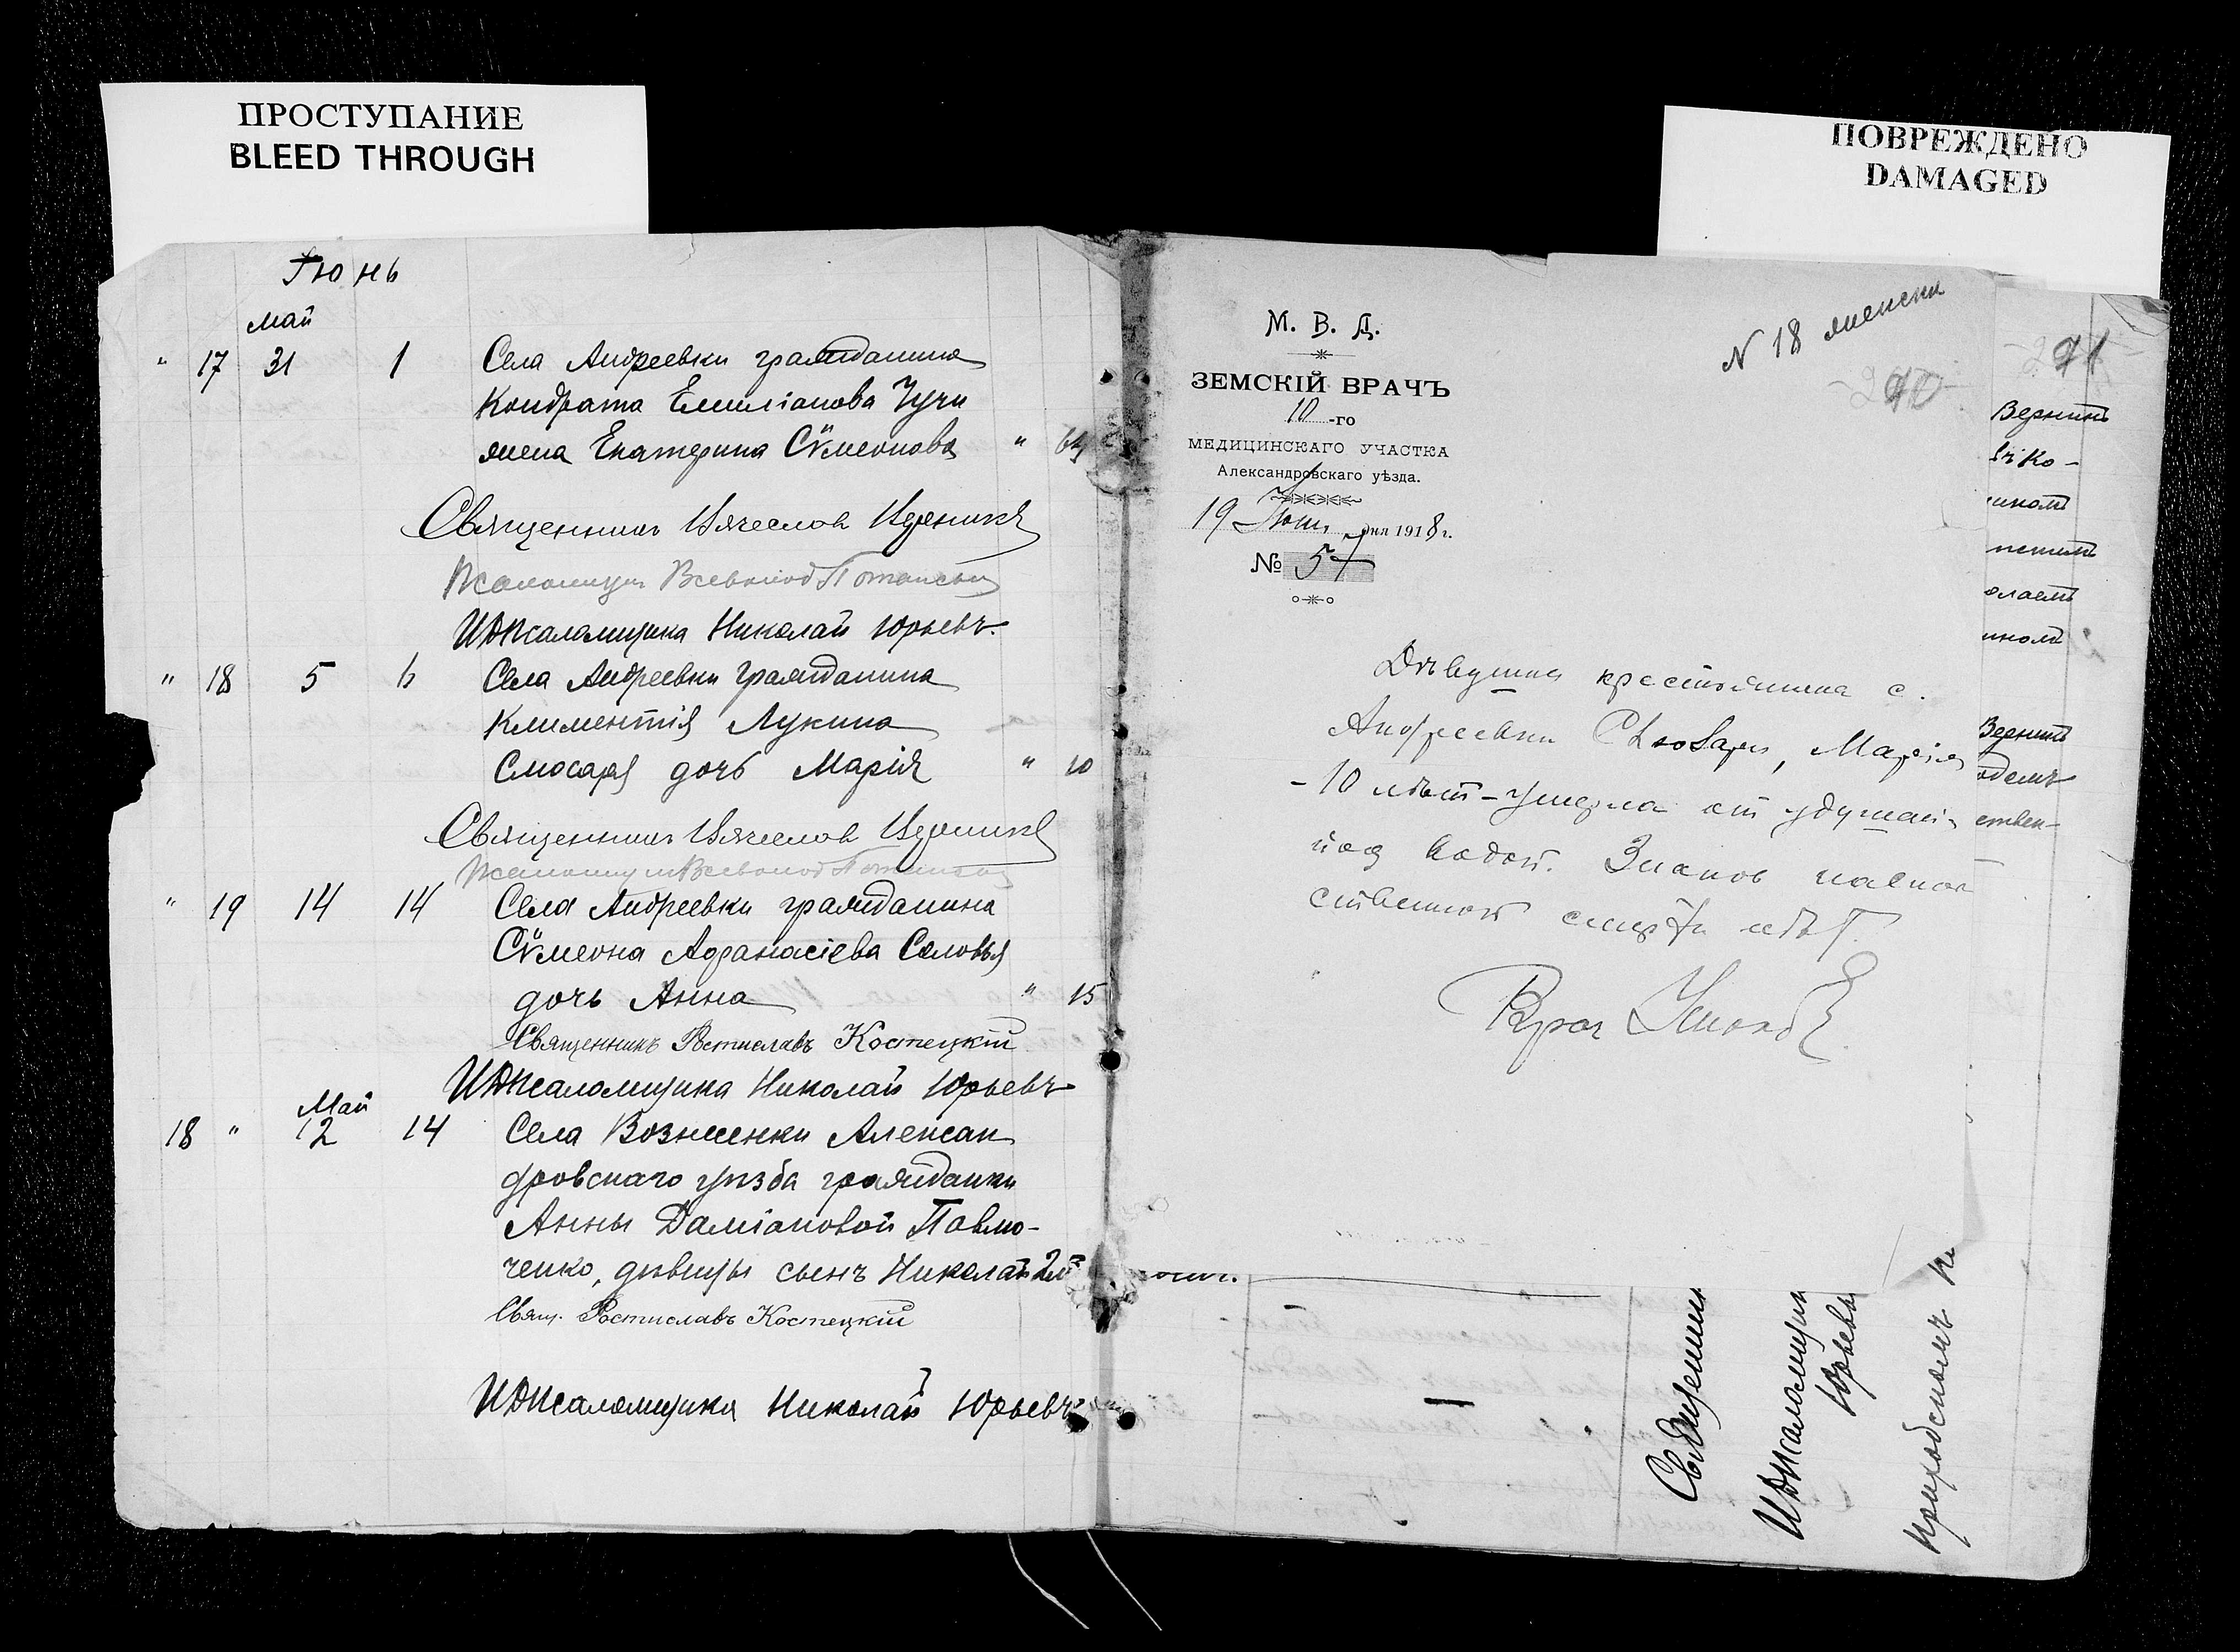 ПРОСТУПАНИЕ
BLEED THROUGH
ПОВРЕЖДЕНО
DAMAGED
Іюнь
Май
" 17 31 1 Села Андреевки гражданина
Кондрата Емиліанова Чучи
жена Екатерина Сѵмеонова "
Священникъ Вячеслав
Псаломщикъ Всеволод
ИДПсаломщика Николай Юрьевъ.
" 18 5 6 Села Андреевки гражданина
Климентія Лукина
Слюсаря дочь Марія " 10
Священникъ Вячеслав
Псаломщикъ Всеволод
" 19 14 14 Села Андреевки гражданина
Сѵмеона Афанасіева Соловья
дочь Анна " 15
Священникъ Ростиславъ Костецкій
ИДПсаломщика Николай Юрьевъ
Май
18 " 12 14 Села Вознесенки Алексан
дровскаго уѣзда гражданки
Анны Даміановой Павлю-
ченко, дѣвицы сынъ Николай
Свящ. Ростиславъ Костецкій
ИДПсаломщика Николай Юрьевъ
N 18 женски
М. В. Д.
ЗЕМСКІЙ ВРАЧЪ
10-го
МЕДИЦИНСКАГО УЧАСТКА
Александровскаго уѣзда.
19 Іюня дня 1918 г.
№ 57
Дѣвушка крестьянина с.
Андреевки Слюсарь, Марія
- 10 лѣт - умерла от удушенія
под водой. Знаков насиль
ственной смерти нѣт.
Врач
291
Священник
ИДПсаломщик
Юрьевъ
приходскомъ